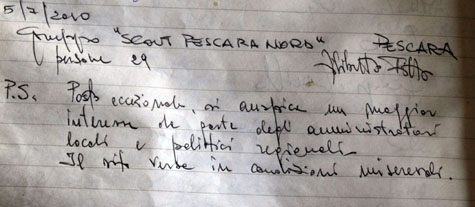 5/7/2010
Gruppo "SCOUT PESCARA NORD" PESCARA
persone 29
P.S. Posto eccezionale, si auspica un maggior
interesse da parte degli amministratori
locali e politici regionali
Il rifugio versa in condizioni miserevoli.